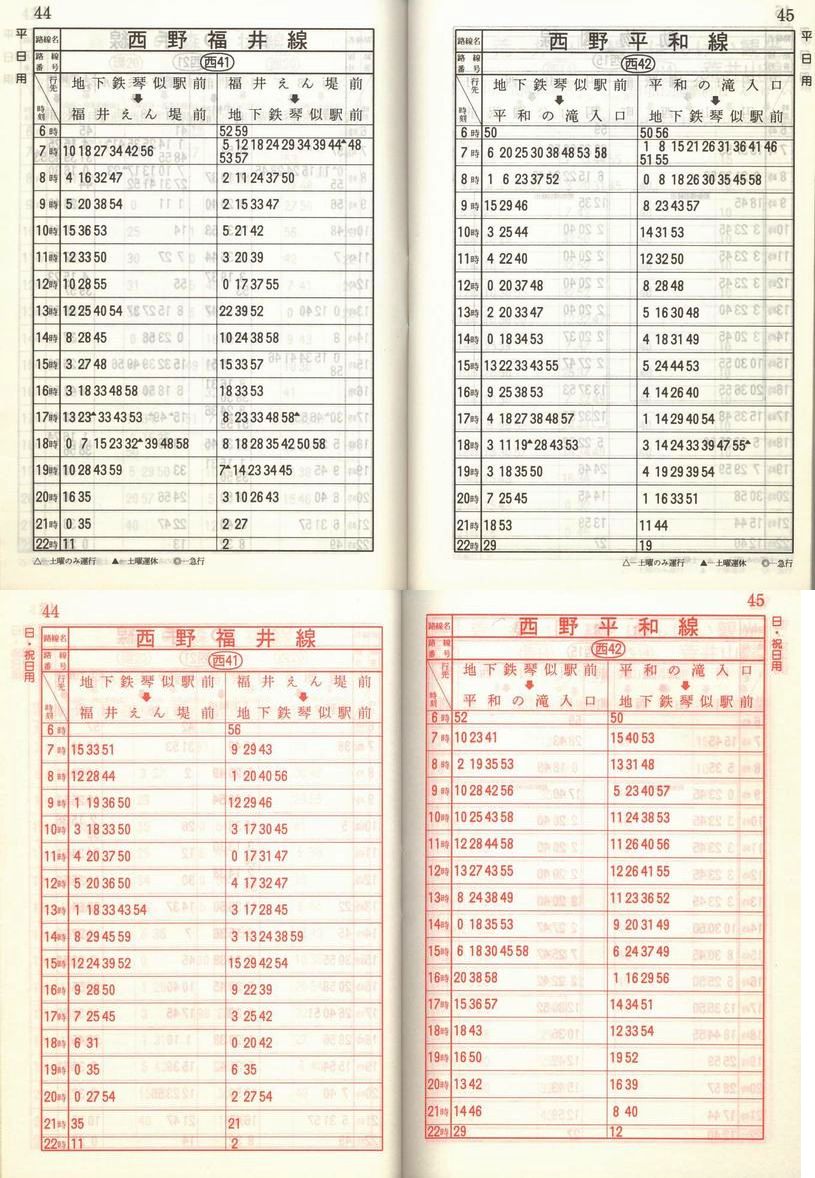 44
平日用
路線名 西野福井線
路線番号 西41
行先 地下鉄琴似駅前 福井えん堤前
時刻 福井えん堤前 地下鉄琴似駅前
6時 52 59
7時 10 18 27 34 42 56 5 12 18 24 29 34 39 44▲48
53 57
8時 4 16 32 47 2 11 24 37 50
9時 5 20 38 54 2 15 33 47
10時 15 36 53 5 21 42
11時 12 33 50 3 20 39
12時 10 28 55 0 17 37 55
13時 12 25 40 54 22 39 52
14時 8 28 45 10 24 38 58
15時 3 27 48 15 33 57
16時 3 18 33 48 58 18 33 53
17時 13 23▲33 43 53 8 23 33 48 58▲
18時 0 7 15 23 32▲39 48 58 8 18 28 35 42 50 58
19時 10 28 43 59 7▲14 23 34 45
20時 16 35 3 10 26 43
21時 0 35 2 27
22時 11 2
△─土曜のみ運行 ▲─土曜運休 ◎─急行
45
平日用
路線名 西野平和線
路線番号 西42
行先 地下鉄琴似駅前 平和の滝入口
時刻 平和の滝入口 地下鉄琴似駅前
6時 50 50 56
7時 6 20 25 30 38 48 53 58 1 8 15 21 26 31 36 41 46
51 55
8時 1 6 23 37 52 0 8 18 26 30 35 45 58
9時 15 29 46 8 23 43 57
10時 3 25 44 14 31 53
11時 4 22 40 12 32 50
12時 0 20 37 48 8 28 48
13時 2 20 33 47 5 16 30 48
14時 0 18 34 53 4 18 31 49
15時 13 22 33 43 55 5 24 44 53
16時 9 25 38 53 4 14 26 40
17時 4 18 27 38 48 57 1 14 29 40 54
18時 3 11 19▲28 43 53 3 14 24 33 39 47 55▲
19時 3 18 35 50 4 19 29 39 54
20時 7 25 45 1 16 33 51
21時 18 53 11 44
22時 29 19
△─土曜のみ運行 ▲─土曜運休 ◎─急行
44
日・祝日用
路線名 西野福井線
路線番号 西41
行先 地下鉄琴似駅前 福井えん堤前
時刻 福井えん堤前 地下鉄琴似駅前
6時 56
7時 15 33 51 9 29 43
8時 12 28 44 1 20 40 56
9時 1 19 36 50 12 29 46
10時 3 18 33 50 3 17 30 45
11時 4 20 37 50 0 17 31 47
12時 5 20 36 50 4 17 32 47
13時 1 18 33 43 54 3 17 28 45
14時 8 29 45 59 3 13 24 38 59
15時 12 24 39 52 15 29 42 54
16時 9 28 50 9 22 39
17時 7 25 45 3 25 42
18時 6 31 0 20 42
19時 0 35 6 35
20時 0 27 54 2 27 54
21時 35 21
22時 11 2
45
日・祝日用
路線名 西野平和線
路線番号 西42
行先 地下鉄琴似駅前 平和の滝入口
時刻 平和の滝入口 地下鉄琴似駅前
6時 52 50
7時 10 23 41 15 40 53
8時 2 19 35 53 13 31 48
9時 10 28 42 56 5 23 40 57
10時 10 25 43 58 11 24 38 53
11時 12 28 44 58 11 26 40 56
12時 13 27 43 55 12 26 41 55
13時 8 24 38 49 11 23 36 52
14時 0 18 35 53 9 20 31 49
15時 6 18 30 45 58 6 24 37 49
16時 20 38 58 1 16 29 56
17時 15 36 57 14 34 51
18時 18 43 12 33 54
19時 16 50 19 52
20時 13 42 16 39
21時 14 46 8 40
22時 29 12